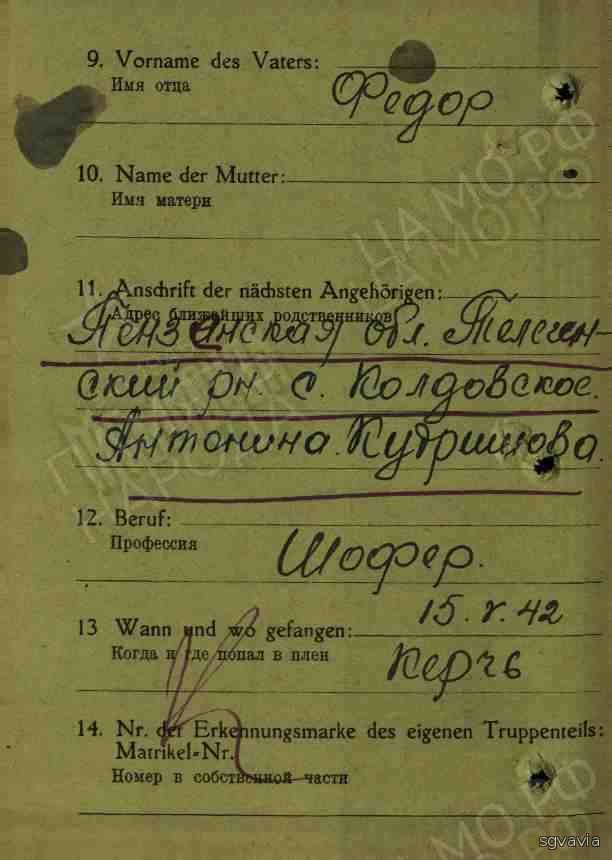 9. Vorname des Vaters:
Имя отца
Федор
10. Name der Mutter:
Имя матери
11. Anschrift der nächsten Angehörigen:
Адрес ближейших родственников
Пензенская обл. Телеген-
ский рн. с. Колдовское.
Антонина. Кудришова.
12. Beruf:
Профессия
Шофер.
13 Wann und wo gefangen:
15.V.42
Когда и где попал в плен
Керчь
14. Nr. der Erkennungsmarke des eigenen Truppenteils:
Matrikel=Nr.
Номер в собственной части
ЦА МО РФ
ЦА МО РФ
ЦА МО РФ
sgvavia